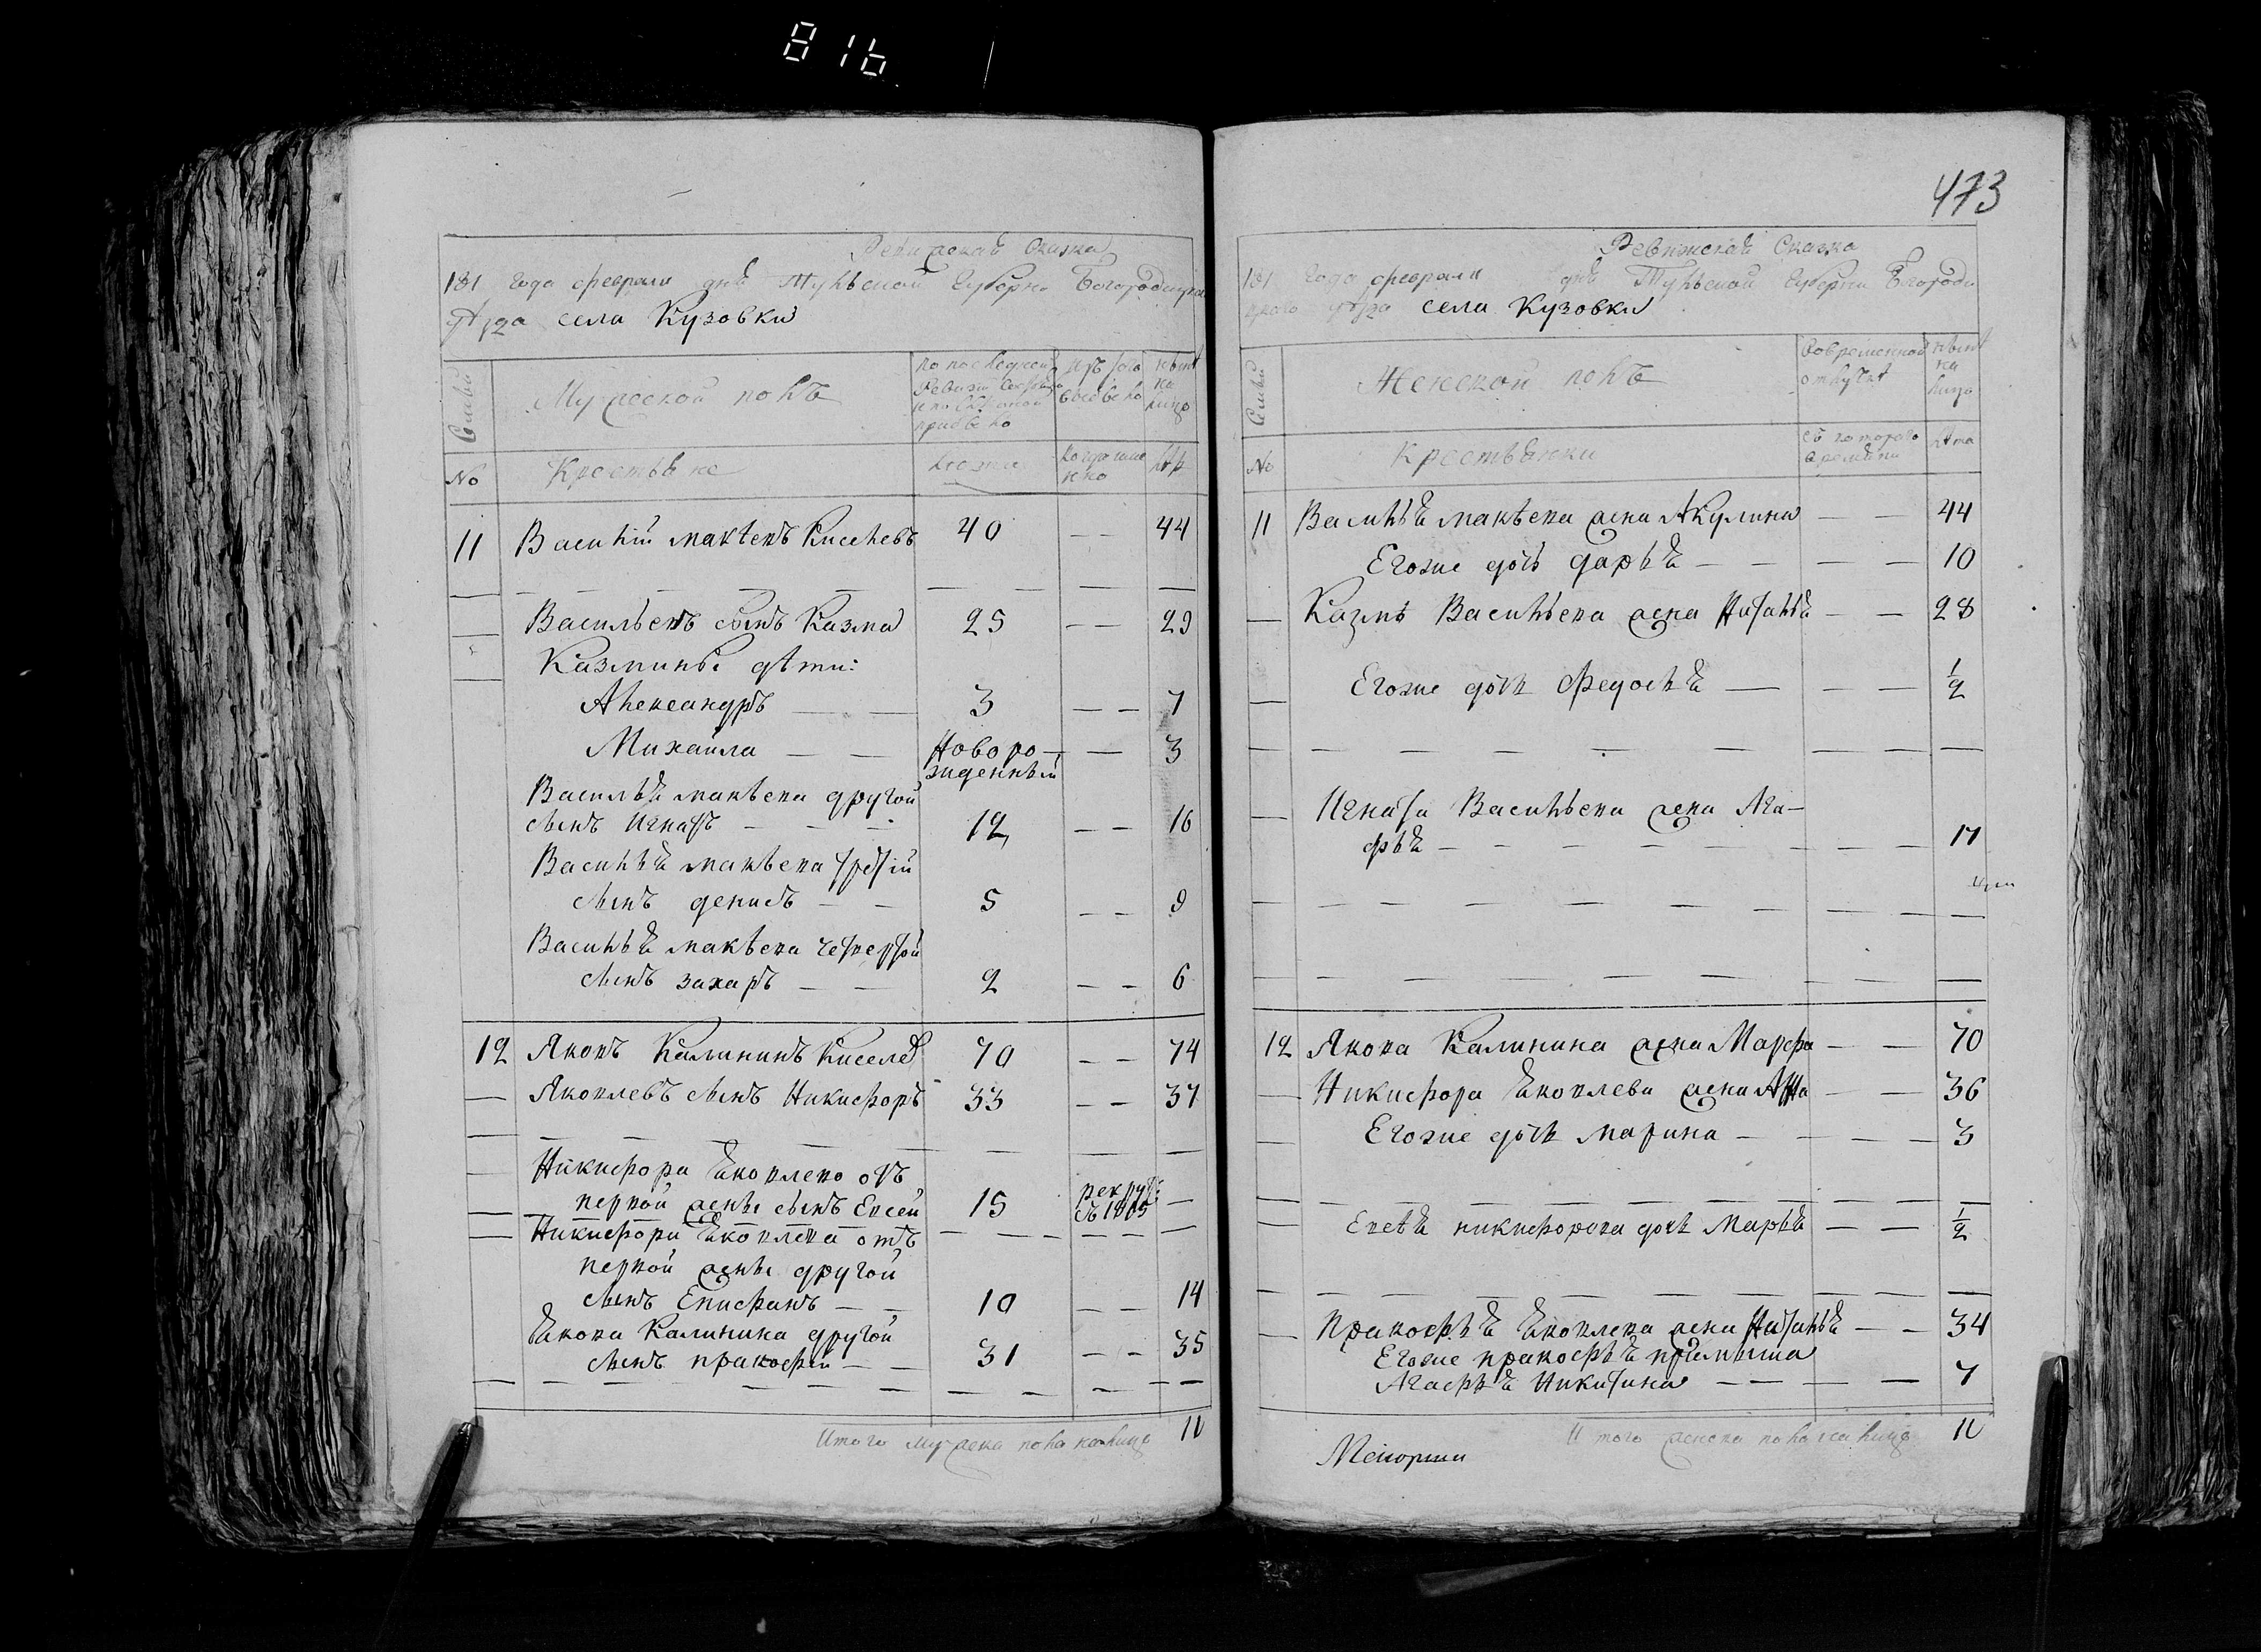 816
Ревижская Сказка
181 года февраля дня Тульской Губерни Богородицка
уѣзда села Кузовки
Семьи
Мужеской полъ
по последней
Ревизи
прибыло
изъ того
выбыло
нынѣ
на
лицо
№
Крестьяне
Лѣта
когда име
нно
Лѣта
11 Василій макѣевъ Киселевъ 40 — — 44
Васильевъ сынъ Казма 25 — — 29
Казмины дѣти:
Александръ — — 3 — — 7
Михайла — — Новоро— — 3
жденный
Васильѧ макѣева другой
сынъ Игнатъ — — — 12 — — 16
Васильѧ макѣева третій
сынъ денисъ — — 5 — — 9
Васильѧ макѣева четвертой
сынъ захаръ — — 2 — — 6
12 Яковъ Калининъ Киселев 70 — — 74
— Яковлевъ сынъ Никифоръ 33 — — 37
Никифора Ѧковлева отъ
первой жены сынъ Евсей 15 рекрут: въ 1805 —
Никифора Ѧковлева отъ
первой жены другой
сынъ Епифанъ — — 10 — — 14
Ѧкова Калинина другой
сынъ пракофій — — 31 — — 35
Итого мужеска пола налицо 10
473
Ревижскаѧ Сказка
181 года февраля дня Тульской Губерни Богороди
цкого уѣзда села Кузовки
Семьи
Женской полъ
Вовременной
отлучкѣ
нынѣ
на
лицо
№
Крестьѧнки
съ которого
времѧни
лѣта
11 Васильѧ макѣева жена Акулина — — 44
Егоже дочь дарьѧ — — — — 10
— Казмы Васильева жена Наталья — — 28
Егоже дочь Федосьѧ — — — 1/2
— Игната Васильева жена Ага—
фьѧ — — — — — — — — 17
12 Якова Калинина жена Марфа — — 70
— Никифора Ѧковлева жена Анна — — 36
— Егоже дочь марина — — — — 3
— Евсѣѧ никифорова дочь Марьѧ — — 1/2
— Пракофьѧ Ѧковлева жена Натальѧ — — 34
Егоже пракофьѧ приемыша
Агафьѧ Никитина — — — — 7
Итого женска пола налицо 10